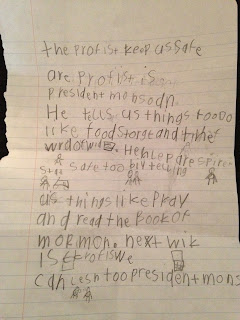 the profist keep us safe
are profist is
president monsodn.
He tells us things tooDo
like food storge and the
wrdofwi. He helep are spiret
stay safe too by telling
us things like Pray
and read the BOOK OF
mormon. next wik
is profist we
can lesn too president mons